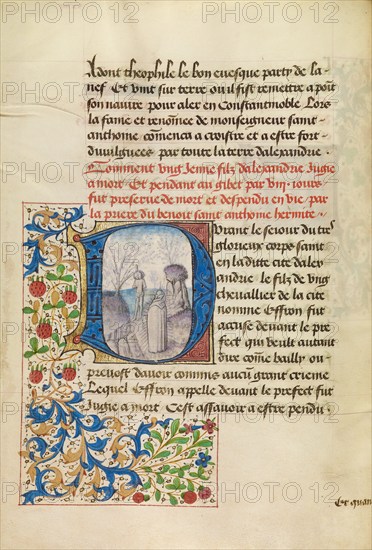 Adont theophile le bon evesque party de la
nef Et vint sur terre ou il fist remettre a poit
son navire pour aler en Constantinoble Lors
la fame et renomee de monseigneur saint
anthoine comenca a croistre et a estre fort
divulguees par toute la terre dalexandrie.
Comment ung Jenne filz dalexandrie Jugie
a mort Et pendant au gibet par viij. iours
fut preserve de mort et despendu en vie par
la priere du benoit saint anthoine hermite.
Durant le seiour du tres
glorieux corps saint
en la ditte cite dalex
andrie le filz de ung
chevallier de la cite
nomme Effron fut
accuse devant le pre
fect qui veult autant
dire come bailly ou
prevost davoir commis aucun grant crieme
Lequel Effron appelle devant le prefect fut
Jugie a mort Cest assavoir a estre pendu.
Et quan
PHOTO12